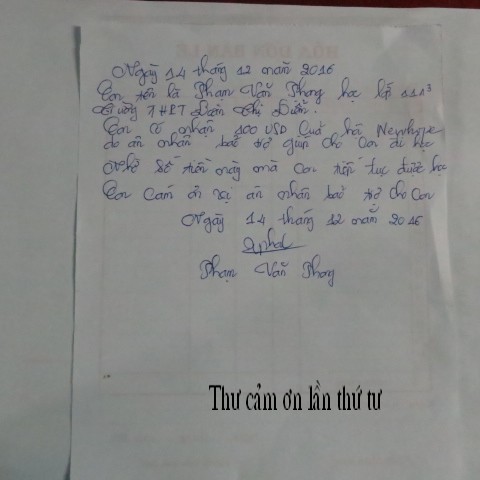 Ngày 14 tháng 12 năm 2016
Con tên là Phạm Văn Phong học lớp 11A3
trường THPT Trần Thị Điểm.
Con có nhận 100 USD của hội Newhope
do ân nhân bảo trợ giúp cho con đi học
Nhờ số tiền này mà con tiếp tục được học
Con cám ơn vị ân nhân bảo trợ cho con
Ngày 14 tháng 12 năm 2016
Phạm Văn Phong
Thư cảm ơn lần thứ tư